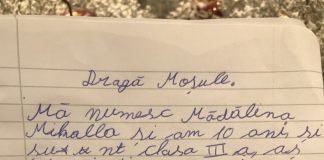 Dragă Moșule.
Mă numesc Mădălina
Mihalla și am 10 ani și
clasa III a, aș